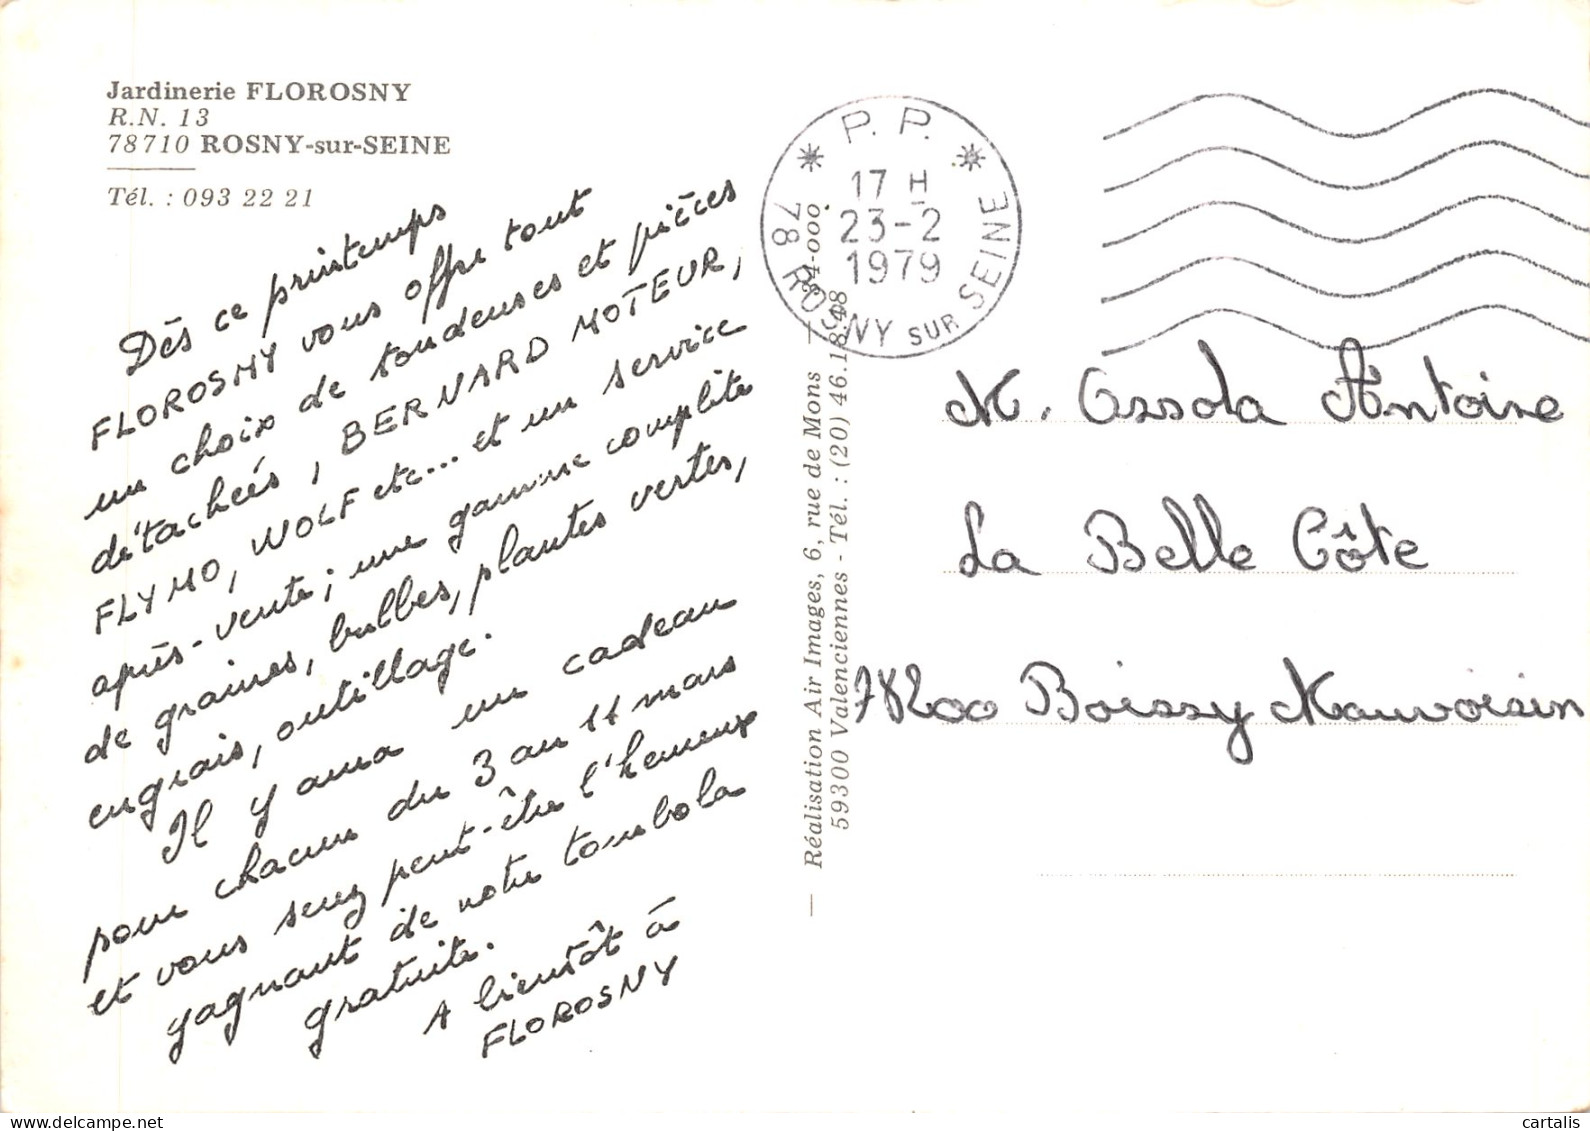 Jardinerie FLOROSNY
R.N. 13
78710 ROSNY-sur-SEINE
Tél. : 093 22 21
Dès ce printemps
FLOROSNY vous offre tout
un choix de tondeuses et pièces
détachées, BERNARD MOTEUR,
FLYMO, WOLF etc... et un service
après-vente ; une gamme complète
de graines, bulbes, plantes vertes,
engrais, outillage.
Il y aura un cadeau
pour chacun du 3 au 11 mars
et vous serez peut-être l'heureux
gagnant de notre tombola
gratuite.
A bientôt à
FLOROSNY
— Réalisation Air Images, 6, rue de Mons —
59300 Valenciennes - Tél. : (20) 46.18.48
P. P.
17 H
23-2
1979
78 ROSNY SUR SEINE
M. Ossola Antoine
La Belle Côte
78200 Boissy Mauvoisin
cartalis